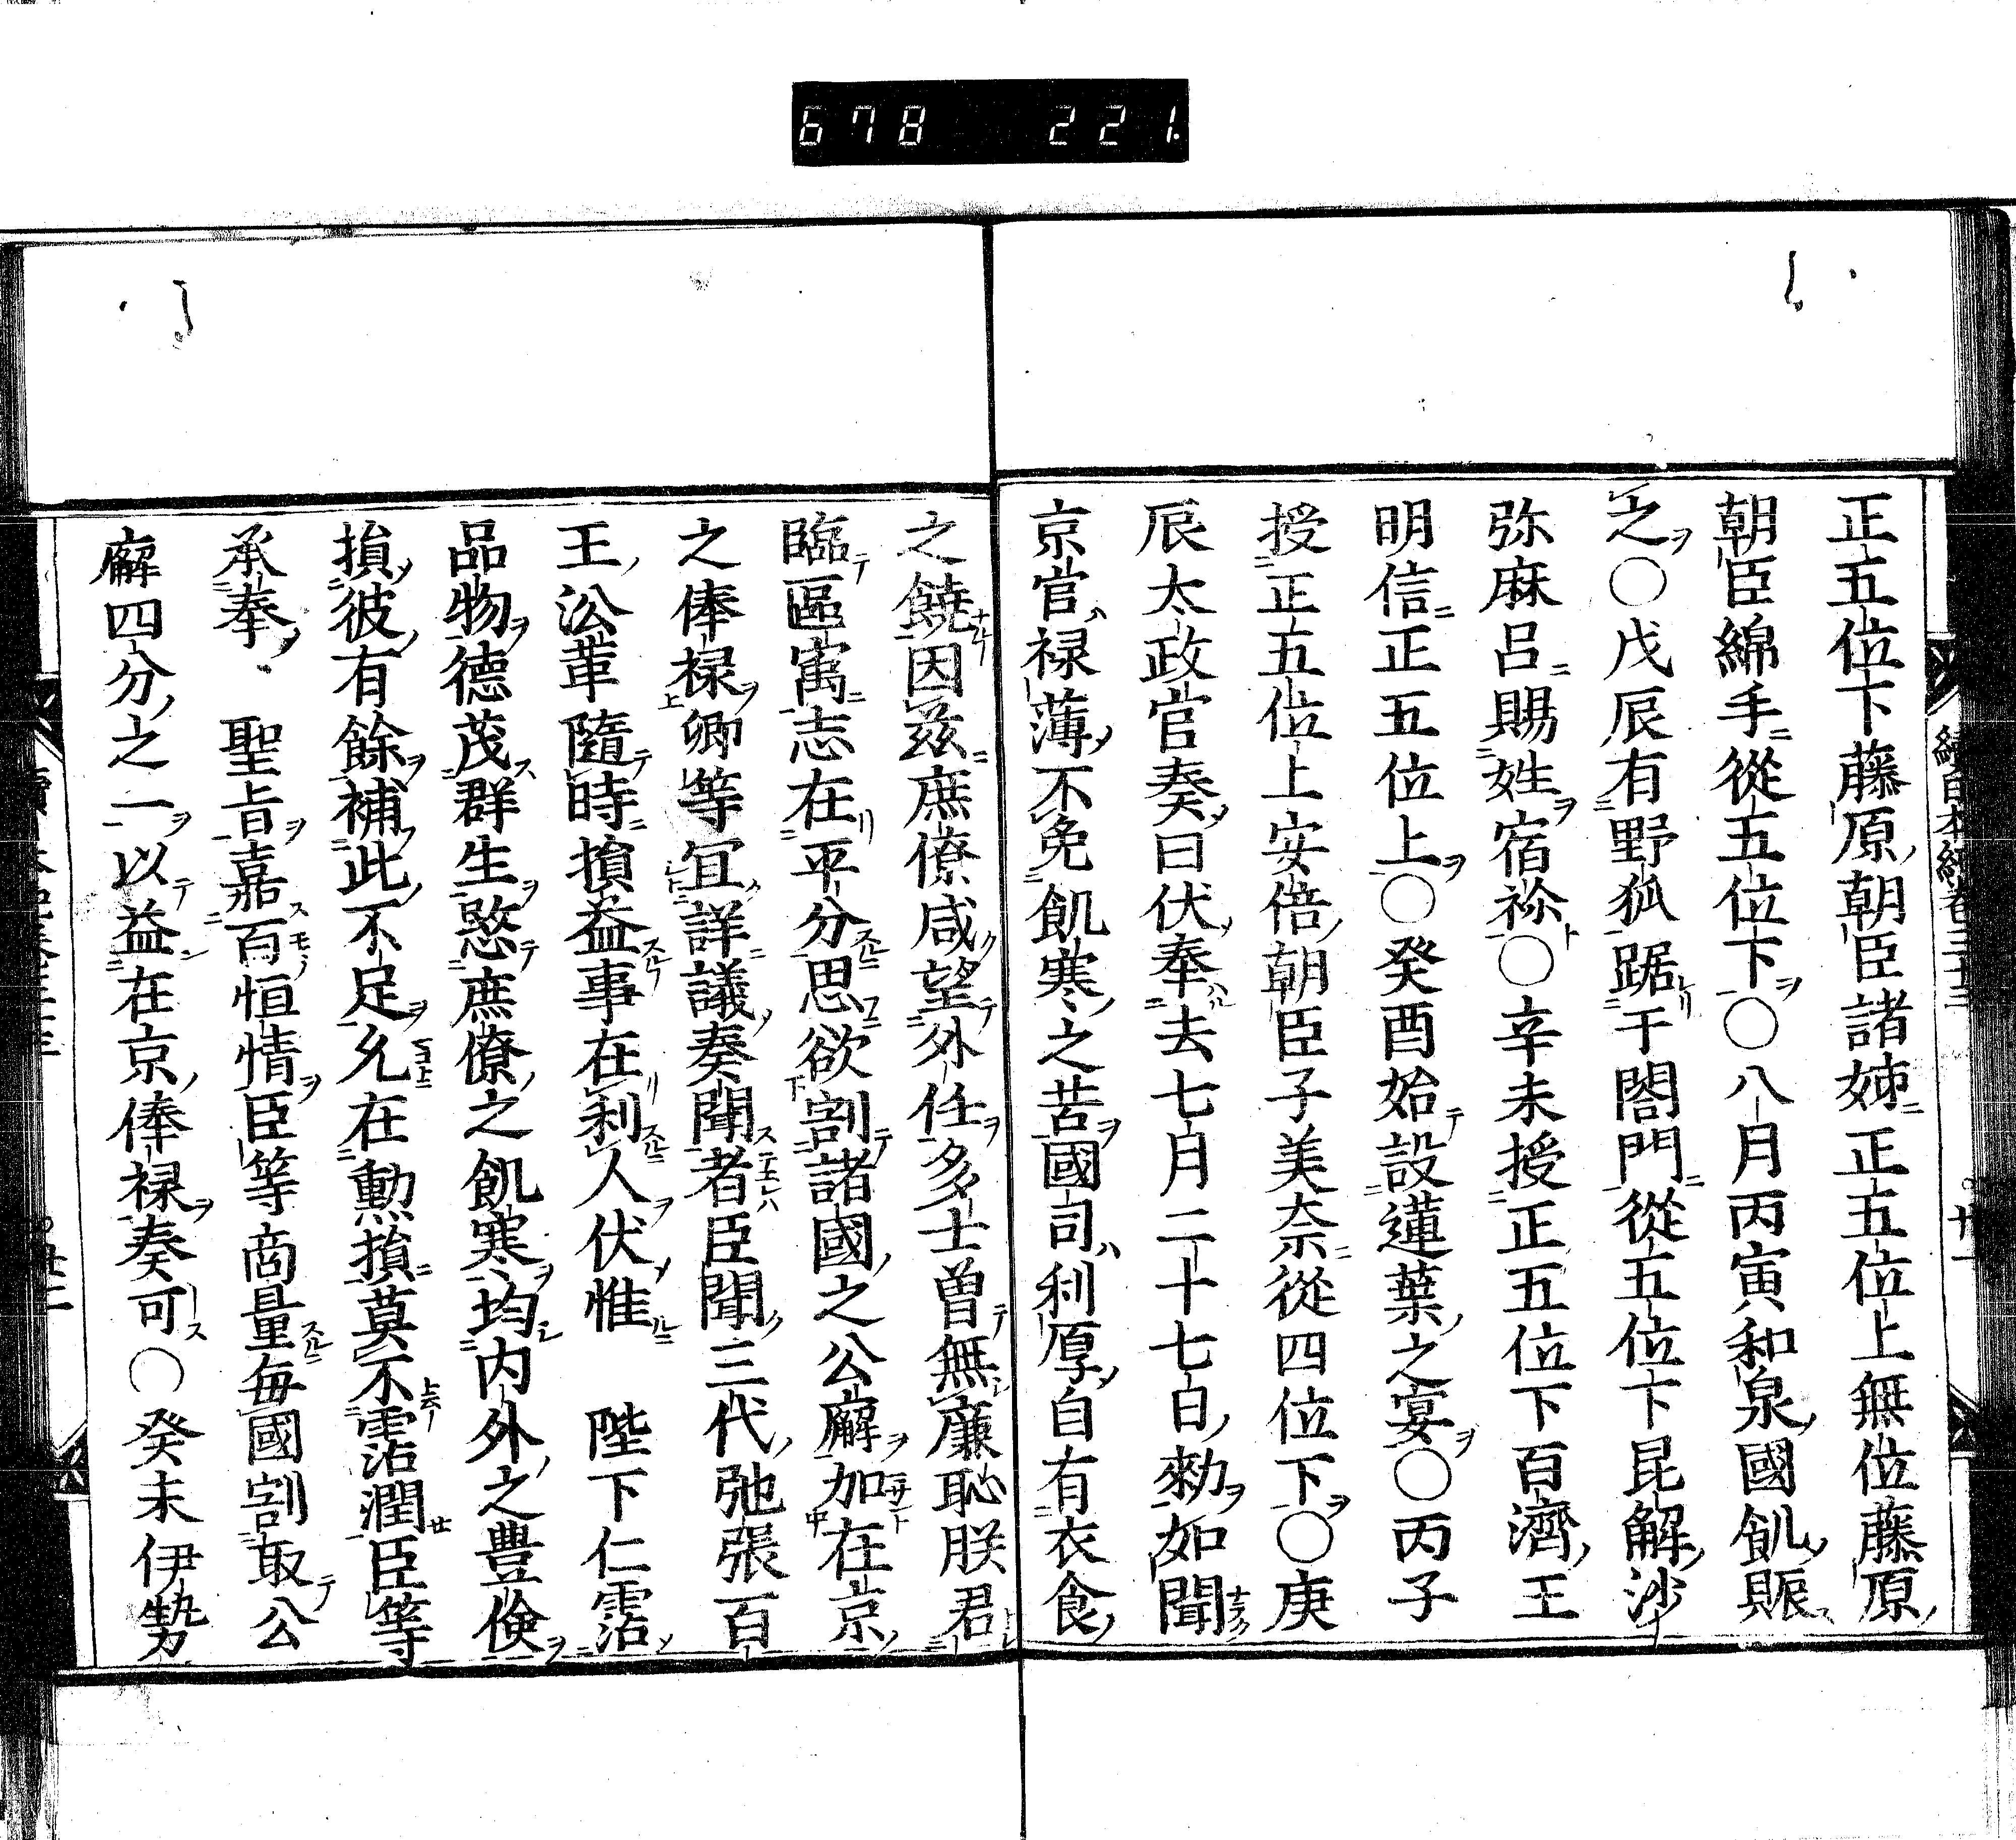 678 221
正五位下藤原朝臣諸姉正五位上無位藤原
朝臣綿手從五位下○八月丙寅和泉國飢賑
之○戊辰有野狐踞于閤門從五位下昆解沙
弥麻呂賜姓宿祢○辛未授正五位下百濟王
明信正五位上○癸酉始設蓮葉之宴○丙子
授正五位上安倍朝臣子美奈從四位下○庚
辰太政官奏曰伏奉去七月二十七日勅如聞
京官禄薄不免飢寒之苦國司利厚自有衣食
之饒因兹庶僚咸望外任多士曽無廉恥朕君
臨區㝢志在平分思欲割諸國之公廨加在京
之俸禄卿等冝詳議奏聞者臣聞三代弛張百
王沿革隨時損益事在利人伏惟　陛下仁霑
品物德茂群生愍庶僚之飢寒均内外之豊儉
損彼有餘補此不足允在勳損莫不霑潤臣等
承奉　聖旨嘉百恒情臣等商量毎國割取公
廨四分之一以益在京俸禄奏可○癸未伊勢